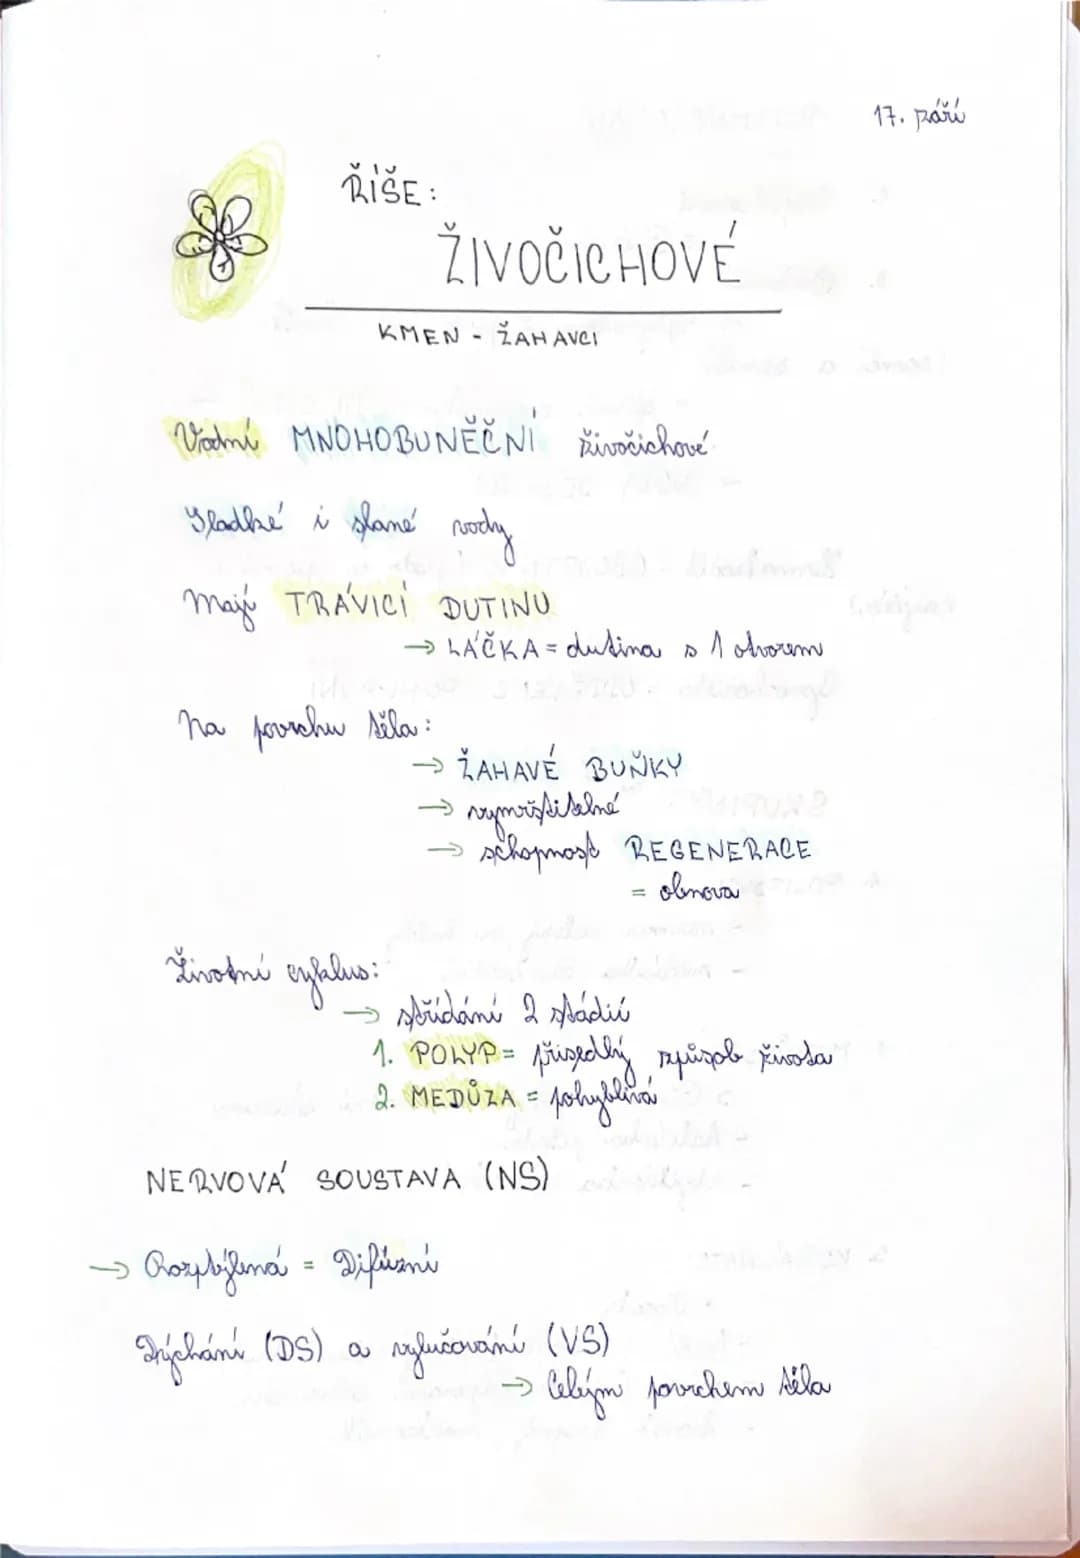 17. září
ŘÍŠE:
ŽIVOČICHOVÉ
KMEN - ŽAHAVCI
Vodní MNOHOBUNĚČNÍ živočichové
Sladké i slané vody
Mají TRÁVICÍ DUTINU
→ LÁČKA = dutina s 1 otvorem
Na povrchu těla:
→ ŽAHAVÉ BUŇKY
→ vymrštitelné
→ schopnost REGENERACE
= obnova
Životní cyklus:
→ střídání 2 stádií
1. POLYP = přisedlý způsob života
2. MEDŮZA = pohyblivá
NERVOVÁ SOUSTAVA (NS)
→ Rozptýlená = Difúzní
Dýchání (DS) a vylučování (VS)
→ Celým povrchem těla